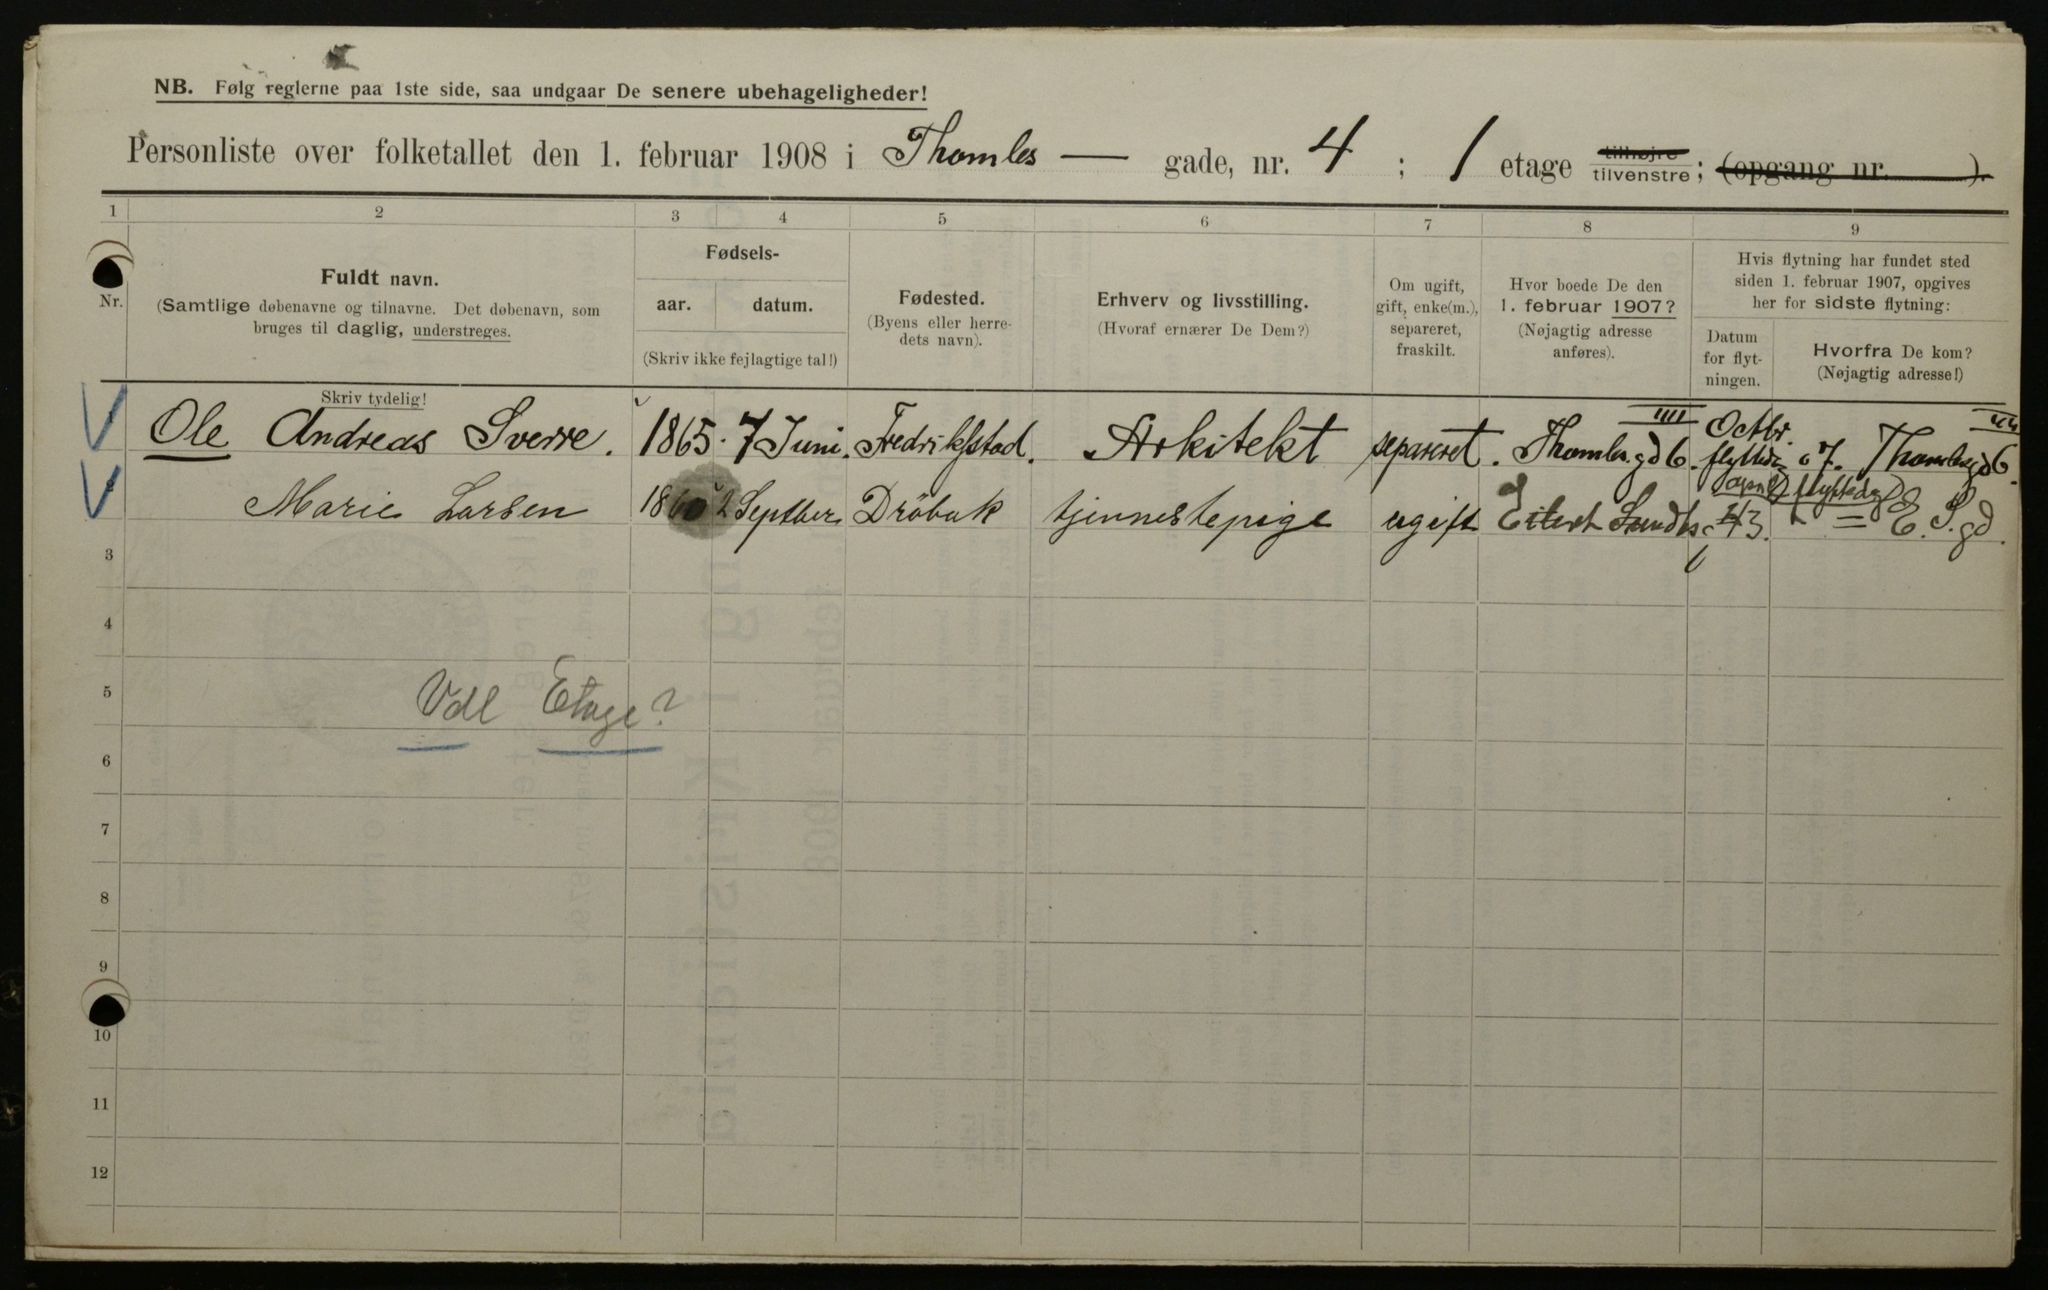 NB. Følg reglerne paa 1ste side, saa undgaar De senere ubehageligheder!
Personliste over folketallet den 1. februar 1908 i Thomles — gade, nr. 4 ; 1 etage tilhøjre tilvenstre; (opgang nr. ).
1 2 3 4 5 6 7 8 9
Nr.
Fuldt navn.
(Samtlige døbenavne og tilnavne. Det døbenavn, som
bruges til daglig, understreges.
Skriv tydelig!
Fødsels-
aar. datum.
(Skriv ikke fejlagtige tal!)
Fødested.
(Byens eller herre-
dets navn).
Erhverv og livsstilling.
(Hvoraf ernærer De Dem?)
Om ugift,
gift, enke(m.),
separeret,
fraskilt.
Hvor boede De den
1. februar 1907?
(Nøjagtig adresse
anføres).
Hvis flytning har fundet sted
siden 1. februar 1907, opgives
her for sidste flytning:
Datum
for flyt-
ningen.
Hvorfra De kom?
(Nøjagtig adresse!)
Ole Andreas Sverre. 1865. 7 Juni. Fredrikstad. Arkitekt separeret. Thomles.gd 6. Octbr. 07. Thomlesgd 6.
Marie Larsen 1860 2 Septber Dröbak tjennestepige ugift Eilert Sundts 43. = E. S. gd.
3
4
5
Vdl Etage?
6
7
8
9
10
11
12